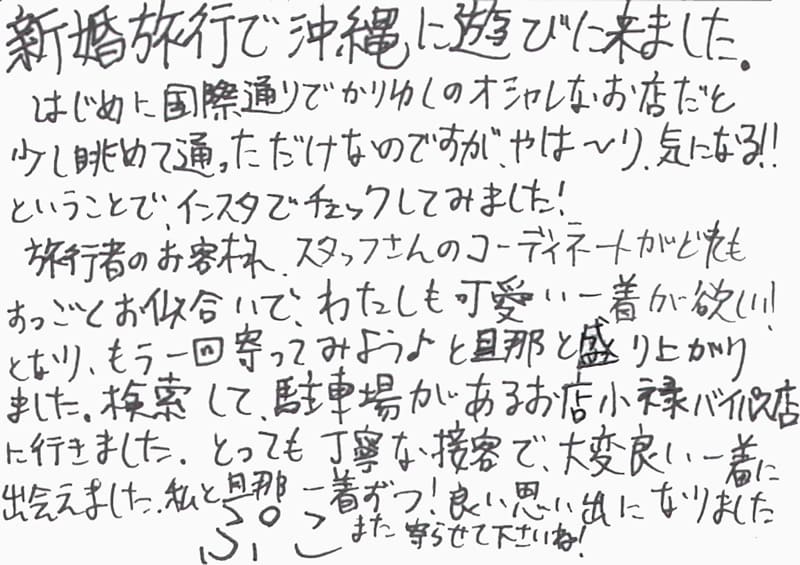 新婚旅行で沖縄に遊びに来ました。
はじめに国際通りでかりゆしのオシャレなお店だと
少し眺めて通っただけなのですが、やは～り、気になる!!
ということで、インスタでチェックしてみました!
旅行者のお客様、スタッフさんのコーディネートがどれも
すっごくお似合いで、わたしも可愛い一着が欲しい!
となり、もう一回寄ってみようよと旦那と盛り上がり
ました。検索して、駐車場があるお店小禄バイパス店
に行きました。とっても丁寧な接客で、大変良い一着に
出会えました。私と旦那一着ずつ!良い思い出になりました
また寄らせて下さいね!